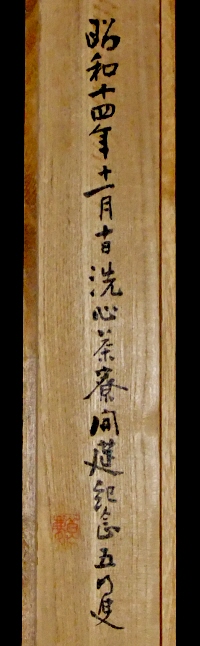 昭和十四年十一月十日洗心茶寮開莚紀念五の隻